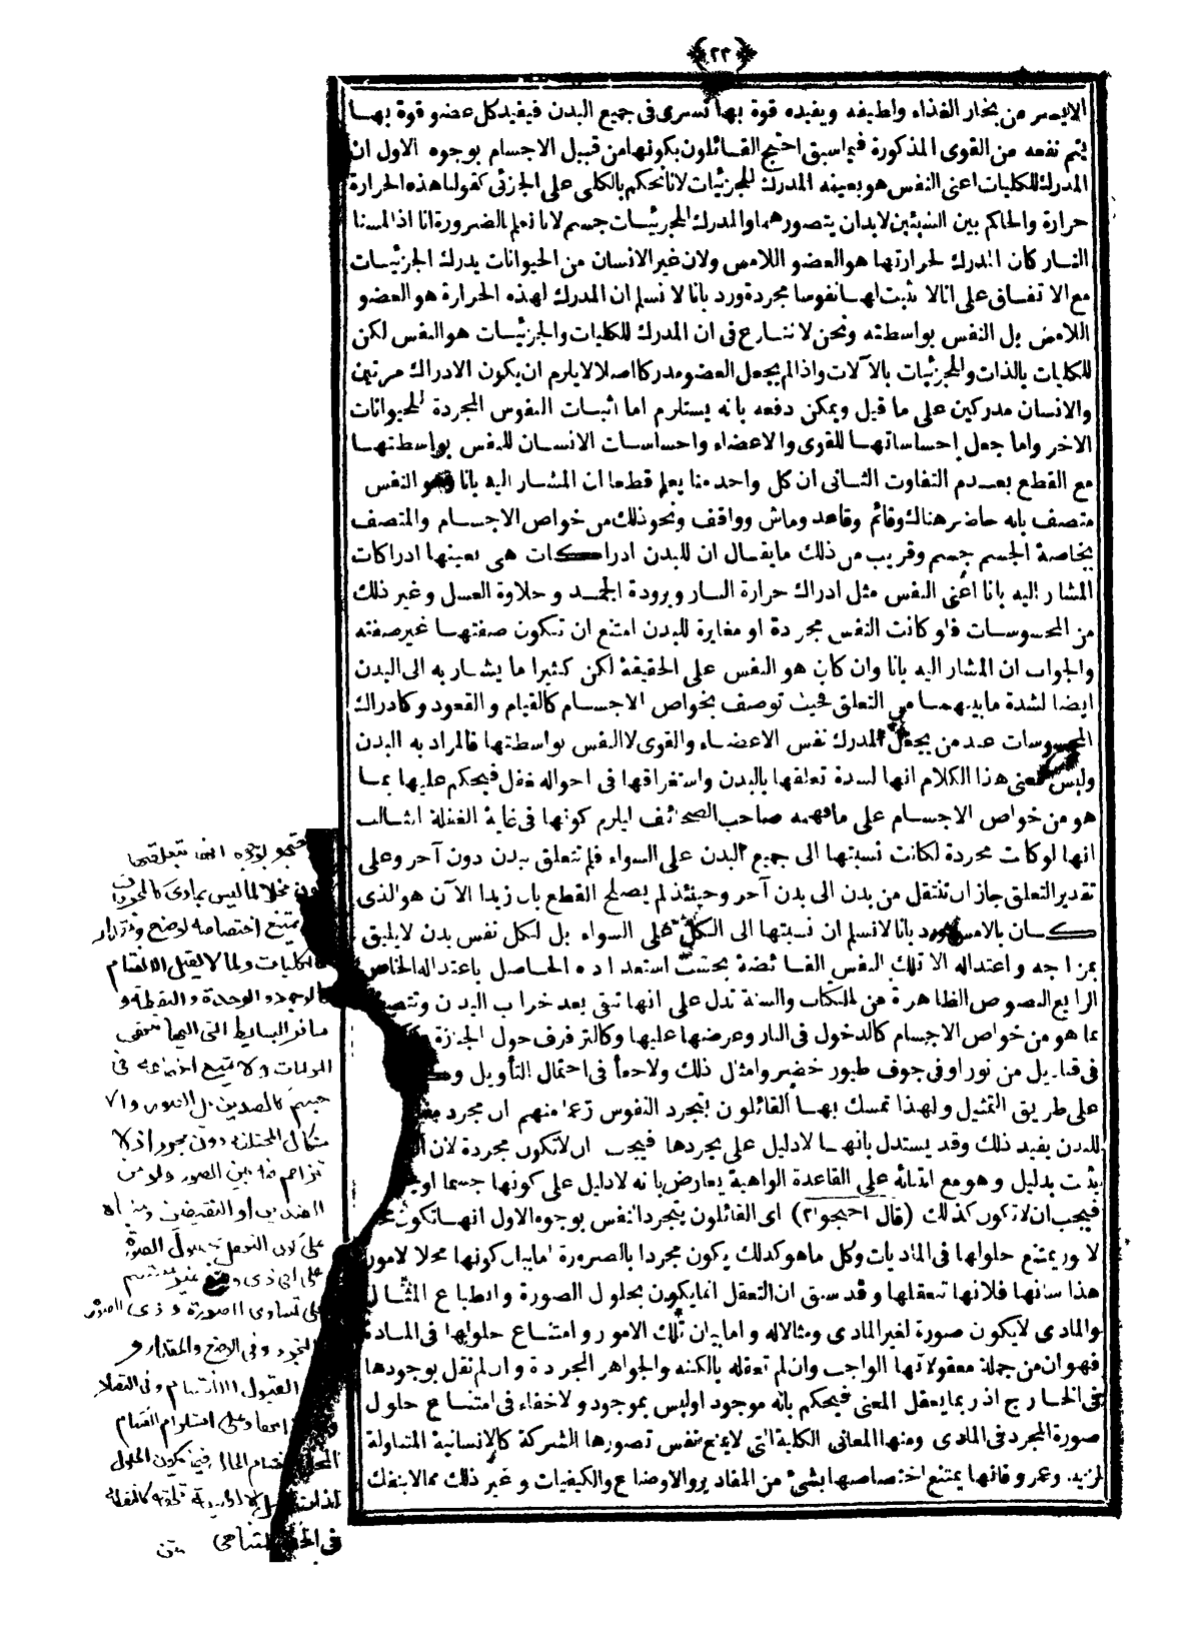 ﴿٢٢﴾
الايسر من بخار الغذاء ولطيفه ويفيده قوة بها تسرى فى جميع البدن فيفيد كل عضو قوة بها
يتم نفعه من القوى المذكورة فيما سبق احتج القائلون بكونها من قبيل الاجسام بوجوه الاول ان
المدرك للكليات اعنى النفس هو بعينه المدرك للجزئيات لانا نحكم بالكلى على الجزئى كقولنا هذه الحرارة
حرارة والحاكم بين الشيئين لابد ان يتصورهما والمدرك للجزئيات جسم لانا نعلم بالضرورة انا اذا لمسنا
النار كان المدرك لحرارتها هو العضو اللامس ولان غير الانسان من الحيوانات يدرك الجزئيات
مع الاتفاق على انا لا نثبت لها نفوسا مجردة ورد بانا لا نسلم ان المدرك لهذه الحرارة هو العضو
اللامس بل النفس بواسطته ونحن لا ننازع فى ان المدرك للكليات والجزئيات هو النفس لكن
للكليات بالذات وللجزئيات بالآلات واذا لم يجعل العضو مدركا اصلا لا يلزم ان يكون الادراك مرتين
والانسان مدركين على ما قيل ويمكن دفعه بانه يستلزم اما اثبات النفوس المجردة للحيوانات
الاخر واما جعل احساساتها للقوى والاعضاء واحساسات الانسان للنفس بواسطتها
مع القطع بعدم التفاوت الثانى ان كل واحد منا يعلم قطعا ان المشار اليه بانا وهو النفس
متصف بانه حاضر هناك وقائم وقاعد وماش وواقف ونحو ذلك من خواص الاجسام والمتصف
بخاصة الجسم جسم وقريب من ذلك ما يقال ان للبدن ادراكات هى بعينها ادراكات
المشار اليه بانا اعنى النفس مثل ادراك حرارة النار وبرودة الجمد وحلاوة العسل وغير ذلك
من المحسوسات فلو كانت النفس مجردة او مغايرة للبدن امتنع ان تكون صفتها غير صفته
والجواب ان المشار اليه بانا وان كان هو النفس على الحقيقة لكن كثيرا ما يشار به الى البدن
ايضا لشدة ما بينهما من التعلق فحيث توصف بخواص الاجسام كالقيام والقعود وكادراك
المحسوسات عند من يجعل المدرك نفس الاعضاء والقوى لا النفس بواسطتها فالمراد به البدن
وليس معنى هذا الكلام انها لشدة تعلقها بالبدن واستغراقها فى احواله غفل فيحكم عليها بما
هو من خواص الاجسام على ما فهمه صاحب الصحائف ليلزم كونها فى غاية الغفلة الثالث
انها لو كانت مجردة لكانت نسبتها الى جميع البدن على السواء فلم تتعلق ببدن دون آخر وعلى
تقدير التعلق جاز ان تنتقل من بدن الى بدن آخر وحينئذ لم يصلح القطع بان زيدا الآن هو الذى
كان بالامس ورد بانا لا نسلم ان نسبتها الى الكل على السواء بل لكل نفس بدن لا يليق
بمزاجه واعتداله الا تلك النفس الفائضة بحسب استعداده الحاصل باعتداله الخاص
الرابع النصوص الظاهرة من الكتاب والسنة تدل على انها تبقى بعد خراب البدن وتتصف
بما هو من خواص الاجسام كالدخول فى النار وعرضها عليها وكالترفرف حول الجنازة
فى قناديل من نور او فى جوف طيور خضر وامثال ذلك ولا خفاء فى احتمال التأويل
على طريق التمثيل ولهذا تمسك بها القائلون بتجرد النفوس زعما منهم ان مجرد
للبدن يفيد ذلك وقد يستدل بانها لا دليل على تجردها فيجب ان لا تكون مجردة لان
يثبت بدليل وهو مع ابتنائه على القاعدة الواهية يعارض بانه لا دليل على كونها جسما
فيجب ان لا تكون كذلك (قال احتجوا ٢) اى القائلون بتجرد النفس بوجوه الاول انها تكون
لامور يمتنع حلولها فى الماديات وكل ما هو كذلك يكون مجردا بالضرورة اما بيان كونها محلا لامور
هذا شأنها فلانها تتعقلها وقد سبق ان التعقل انما يكون بحلول الصورة وانطباع المثال
والمادى لا يكون صورة لغير المادى ومثالا له واما بيان تلك الامور وامتناع حلولها فى المادة
فهو ان من جملة معقولاتها الواجب وان لم تعقله بالكنه والجواهر المجردة وان لم نقل بوجودها
فى الخارج اذ ربما يعقل المعنى فيحكم بانه موجود او ليس بموجود ولا خفاء فى امتناع حلول
صورة المجرد فى المادى ومنها المعانى الكلية التى لا يمنع نفس تصورها الشركة كالانسانية المتناولة
لزيد وعمرو فانها يمتنع اختصاصها بشئ من المقادير والاوضاع والكيفيات وغير ذلك مما لا ينفك
بوجوه انها بتعقلها
محلا لما ليس بمادى كالمجردات
يمتنع اختصاصه لوضع ومقدار
كالكليات ولما لا يقبل الانقسام
كالوجود والوحدة والنقطة و
سائر البسايط التى اليها تنتهى
المركبات ولا يمتنع اجتماعه فى
جسم كالضدين بل الصور والا
شكال المختلفة دون مجرد اذ لا
تزاحم فيه بين الصور ولو من
الضدين او النقيضين
على كون التعقل بحلول الصورة
على تساوى الصورة وذى الصورة
التجرد وفى الوضع والمقدار و
القبول للانقسام
على استلزام انقسام
المحل انقسام الحال فيما يكون الحلول
متن